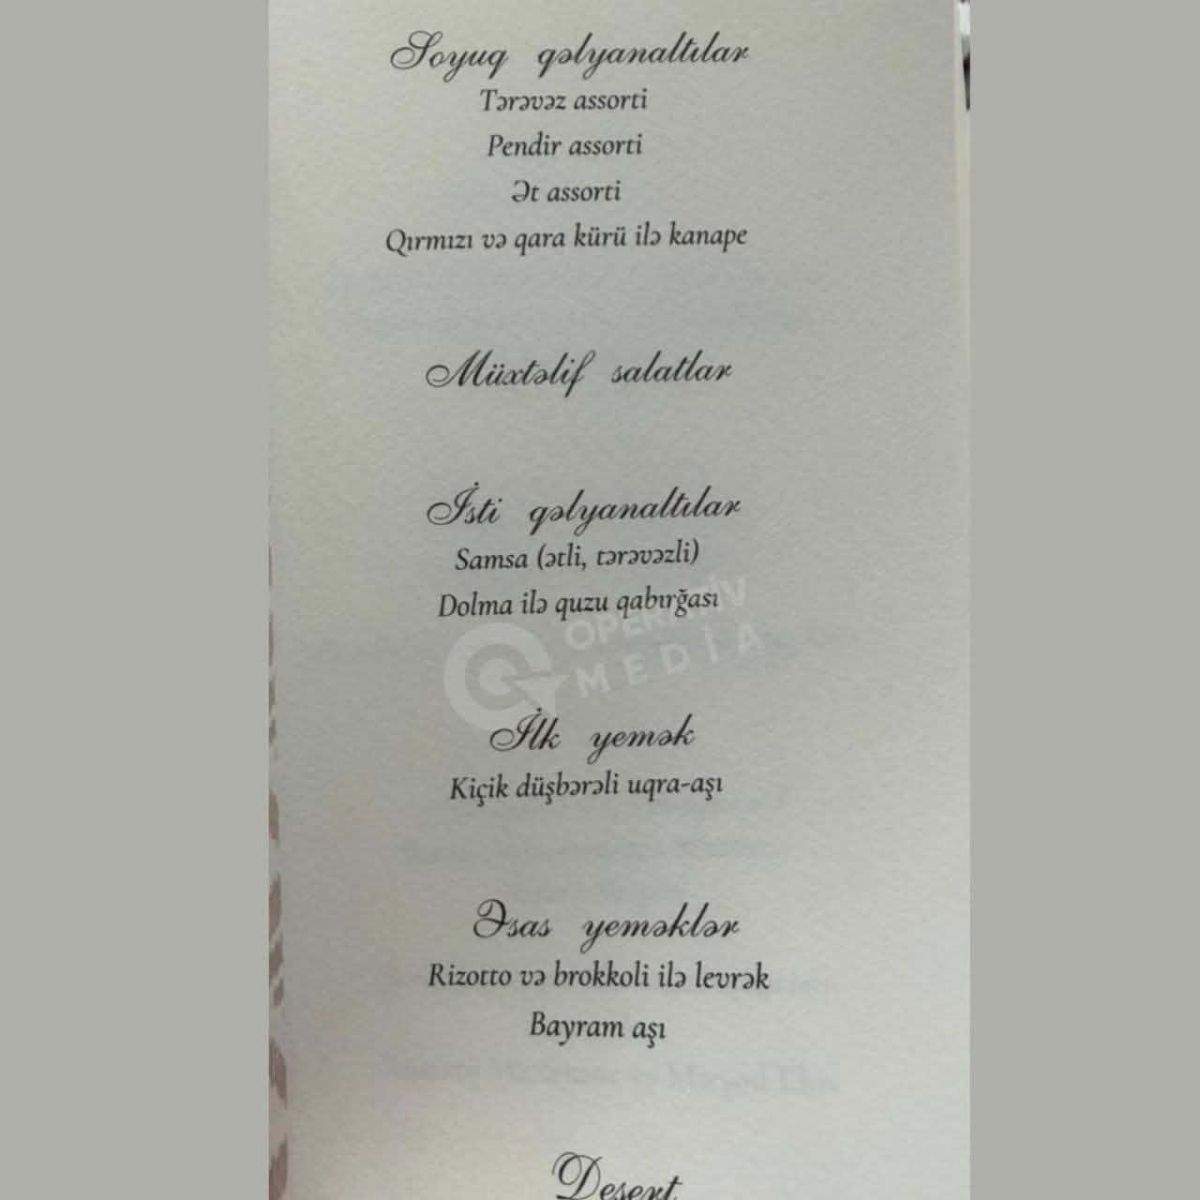 Soyuq qəlyanaltılar
Tərəvəz assorti
Pendir assorti
Ət assorti
Qırmızı və qara kürü ilə kanape
Müxtəlif salatlar
İsti qəlyanaltılar
Samsa (ətli, tərəvəzli)
Dolma ilə quzu qabırğası
OPERATİV
MEDİA
İlk yemək
Kiçik düşbərəli uqra-aşı
Əsas yeməklər
Rizotto və brokkoli ilə levrək
Bayram aşı
Desert